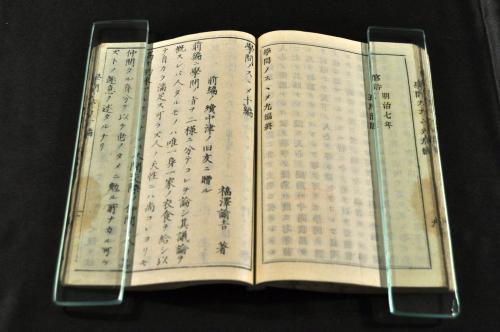 學問ノスヽメ九編終
明治七年
官許
學問ノスヽメ十編
前編ノ續中津ノ旧友ニ贈ル
福澤諭吉 著
前編ニ學問ノ旨ヲ二様ニ分テコレヲ論シ其議論ヲ
概スレバ人タルモノハ唯一身一家ノ衣食ヲ給シ以
テ自カラ滿足ス可ラズ人ノ天性ニハ尚コレヨリモ
仲間タル身分ヲ以テ世ノタメニ勉ル所ナカル可ラ
ズトノ趣意ヲ述タルナリ